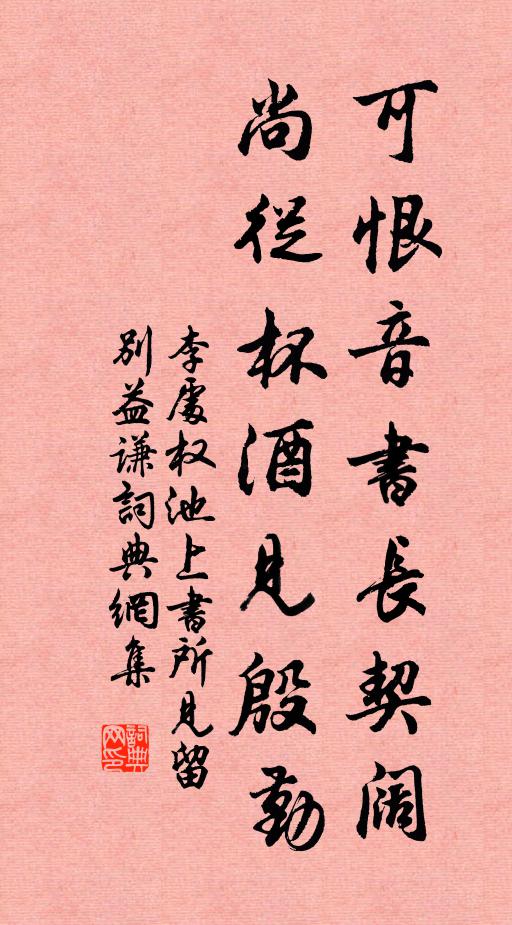 可恨音書長契阔
尚從杯酒見殷勤
李處权池上書所見留
别益谦詞典網集
詞典
网印